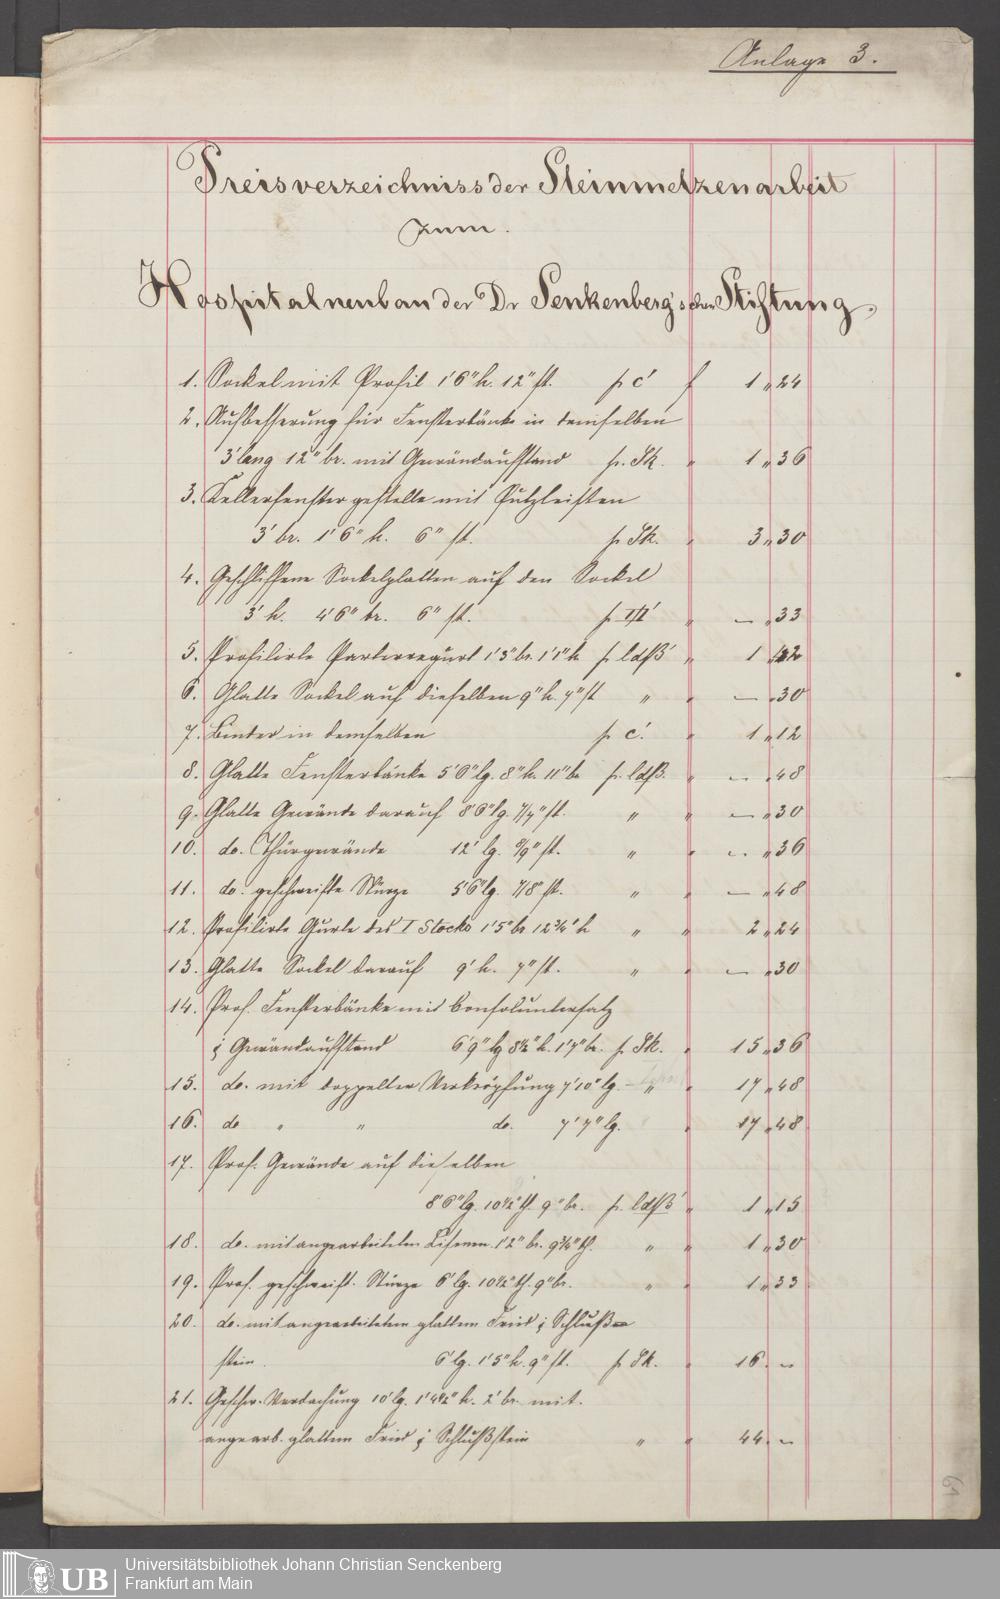 Anlage 3.
Preisverzeichniss der Steinmetzenarbeit
zum.
Hospitalneubau der Dr Senkenberg'schen Stiftung.
1. Sockel mit Profil 1'6" h. 12" st. p c' f 1 „ 24
2. Ausbesserung für Fensterbänke in demselben
3' lang 12" br. mit Gewändaufstand pr. Stk. „ 1 „ 36
3. Kellerfenstergestelle mit Putzleisten
3' br. 1'6" h. 6" st. p Stk. „ 3 „ 30
4. Geschliffene Sockelplatten auf den Sockel
3' h. 4'6" br. 6" st. p „ — „ 33
5. Profilirte Parterregurt 1'3" br. 1'1" h p ldfß' „ 1
6. Glatte Sockel auf dieselben 9" h. 7" st „ „ — „ 30
7. Binder in demselben p c'. „ 1 „ 12
8. Glatte Fensterbänke 5'6" lg. 8" h. 11" br p. ldfß. „ — „ 48
9. Glatte Gewände darauf 8'6" lg. 7/7" st. „ „ — „ 30
10. do. Thürgewände 12' lg. 9/9" st. „ „ — „ 36
11. do. geschweifte Stürze 5'6" lg. 7/8" st. „ „ — „ 48
12. Profilirte Gurte des I Stocks 1'5" br 12¾" h „ „ 2 „ 24
13. Glatte Sockel darauf 9' h. 7" st. „ „ — „ 30
14. Prof. Fensterbänke mit Consoluntersatz
& Gewändaufstand 6'9" lg 8½" h. 1'7" br. p. Stk. „ 15 „ 36
15. do. mit doppelter Verkröpfung 7'10" lg. — „ „ 17 „ 48
16. do „ „ do. 7'7" lg. „ 17 „ 48
17. Prof. Gewände auf dieselben
8'6" lg. 10½" th. 9" br. p. ldfß' „ 1 „ 15
18. do. mit angearbeiteten Lisenen. 1'2" br. 9¾" th. „ „ 1 „ 30
19. Prof. geschweift. Stürze 6' lg. 10½" th. 9" br. „ „ 1 „ 33
20. do. mit angearbeitetem glattem Fries & Schluß=
stein. 6' lg. 1'5" h. 9" st. p Stk. „ 16 „ —
21. Geschw. Verdachung 10' lg. 1'4½" h. 2' br. mit.
angearb. glattem Fries & Schlußstein „ „ 44 „ —
61
UB
Universitätsbibliothek Johann Christian Senckenberg
Frankfurt am Main